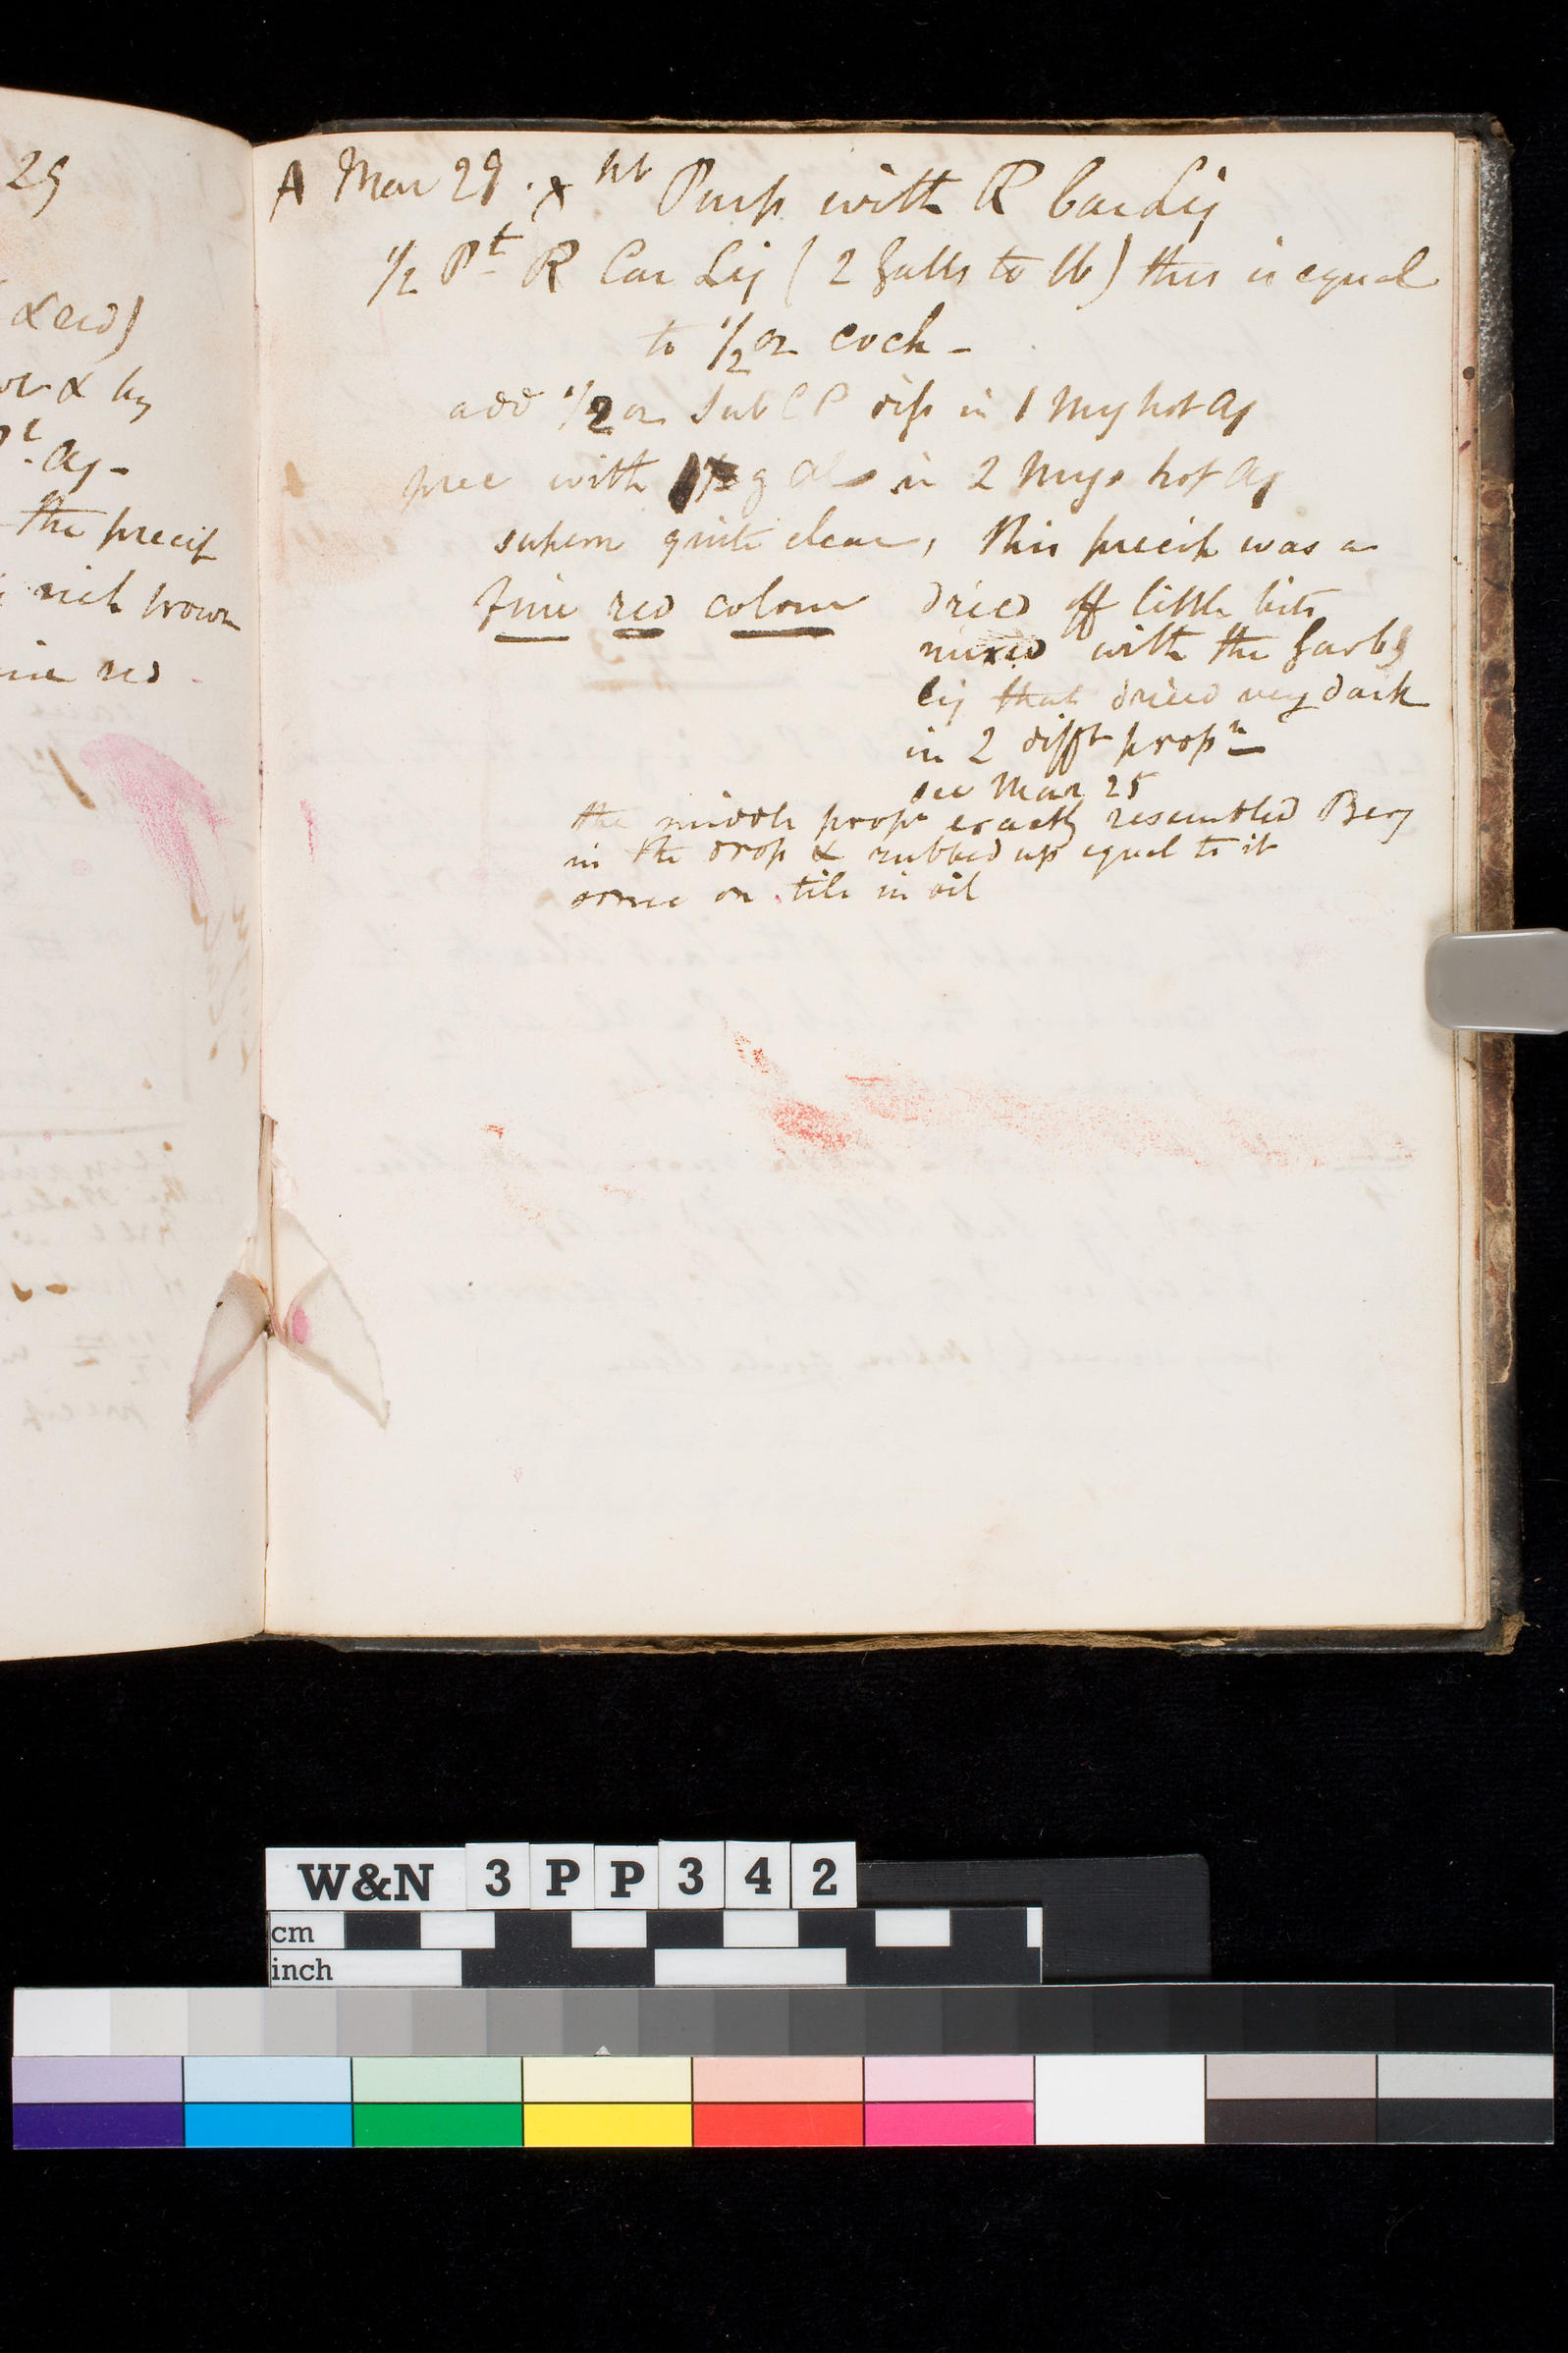 29
& eid)
or & hy
Aq -
the precip
rich brown
ine red
A Mar 29 . x Purp with R Car Liq
1/2 Pt R Car Liq ( 2 Galls to lb ) this is equal
to 1/2 oz coch -
add 1/2 oz Sub C P diss in 1 Mug hot Aq
prec with in 2 Mugs hot Aq
supern quite clear, this precip was a
fine red colour
dried off little bits
mixed with the
liq that dried very dark
in 2 difft propn
see Mar 25
the middle propn exactly resembled Berg
in the drop & rubbed up equal to it
on tile in oil
W&N 3 P P 3 4 2
cm
inch